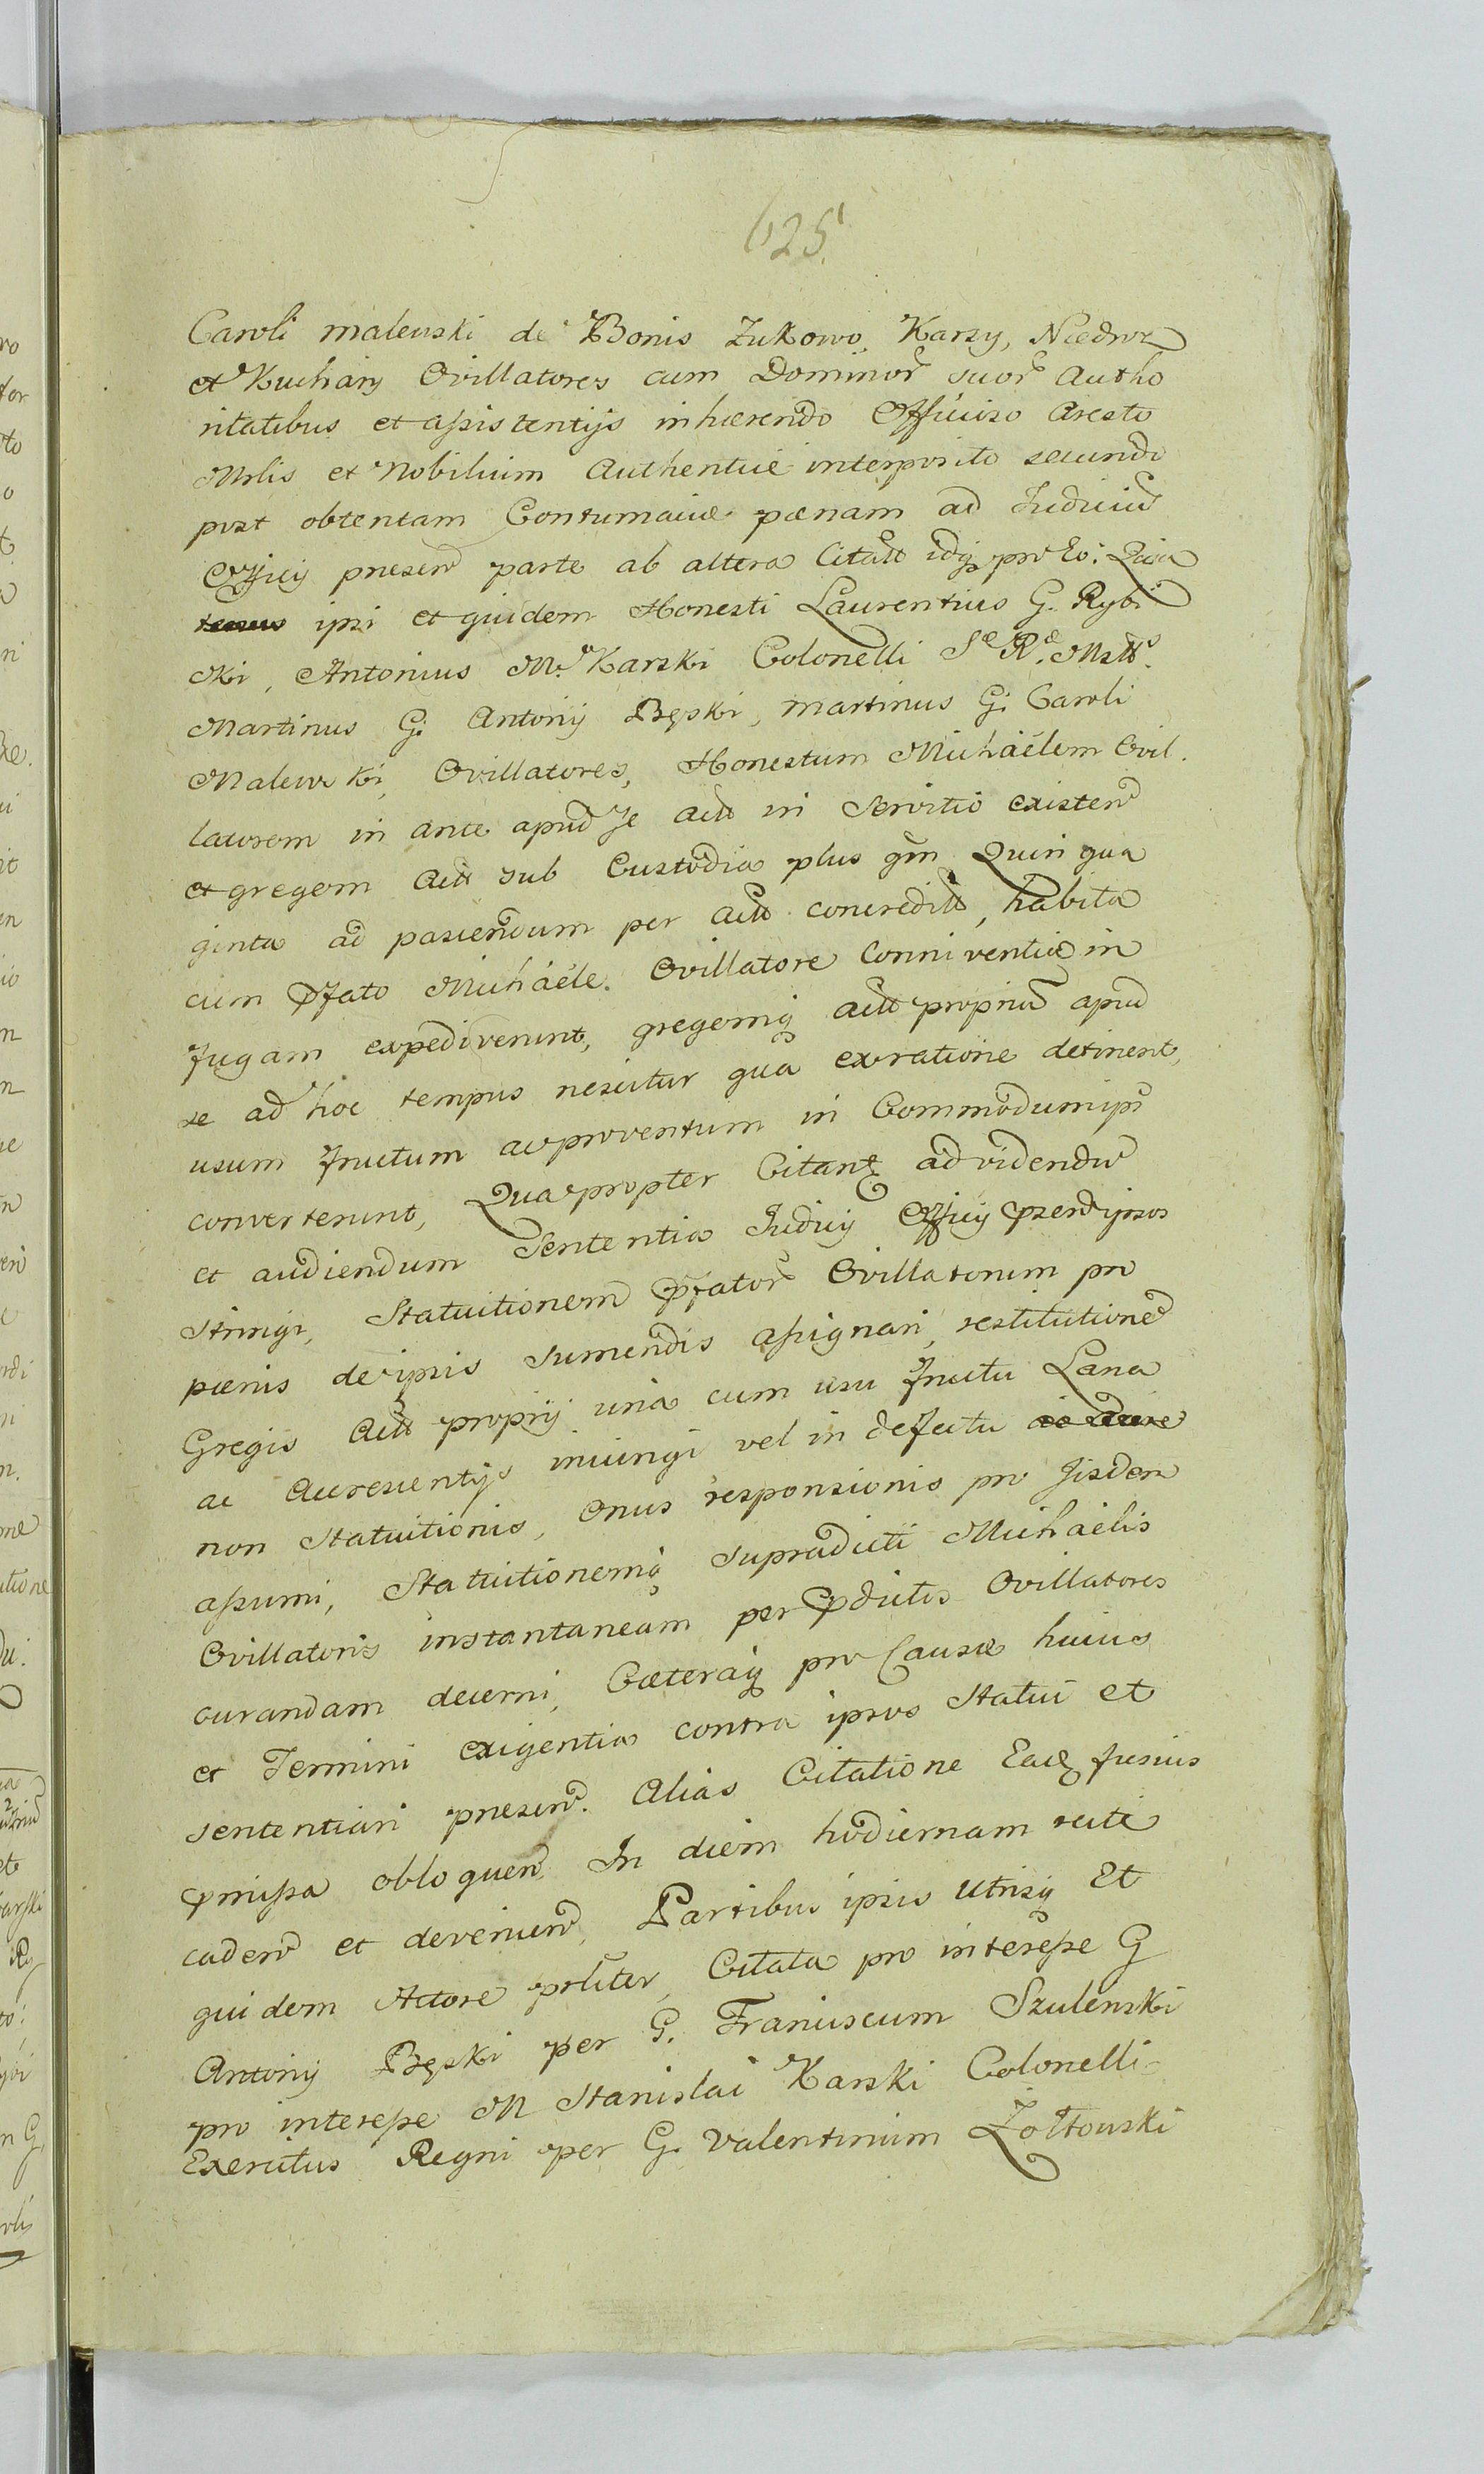 625
Caroli Malewski de Bonis Żukowo, Karsy, Niedroz
et Kuchary Ovillatores cum Dominor suor Autho
ritatibus et assistentijs inhærendo Officioso Aresto
Mrlis et Nobilium Authentice interposito secundo
post obtentam Contumaciæ pænam ad Judiciu
Officij presen parte ab altera Citatt idq pro Eo: Quia
ipsi et quidem Honesti Laurentius G. Rybi
ski, Antonius M. Karski Colonelli Sæ Ræ Mattis
Martinus G. Antonij Bęski, Martinus G. Caroli
Malewski, Ovillatores, Honestum Michaëlem Ovil.
latorem in ante apud se Actt in Servitio existen
et gregem Actt sub Custodia plus qm Quinqua
ginta ad pascendum per Actt concreditt, habita
cum Pfato Michaële Ovillatore Conniventia in
fugam expediverunt, gregemq actt propriu apud
se ad hoc tempus nescitur qua ex ratione detinent,
usum fructum ac proventum in Commodum ips
converterunt, Quapropter Citant ad videndu
et audiendum Sententia Judicij Officij psend ipsos
stringi, Statuitionem Pfator Ovillatorum pro
pænis de ipsis sumendis assignari, restitutione
Gregis Actt proprij una cum usu fructu Lana
ac Accrescentijs iniungi vel in defectu
non Statuitionis, Onus responsionis pro Jisdem
assumi, Statuitionemq supradicti Michaelis
Ovillatoris instantaneam per Pdictos Ovillatores
curandam decerni, Cæteraq pro Causæ huius
et Termini exigentia contra ipsos Statui et
sententiari presen. Alias Citatione Eaq fusius
Pmissa obloquen. In diem hodiernam recte
caden et devenien, Partibus ipsis Utrisq Et
quidem Actore prliter, Citata pro interesse G
Antonij Bęski per G. Franciscum Szulenski
pro interesse M Stanislai Karski Colonelli
Exercitus Regni per G. Valentinum Żołtowski